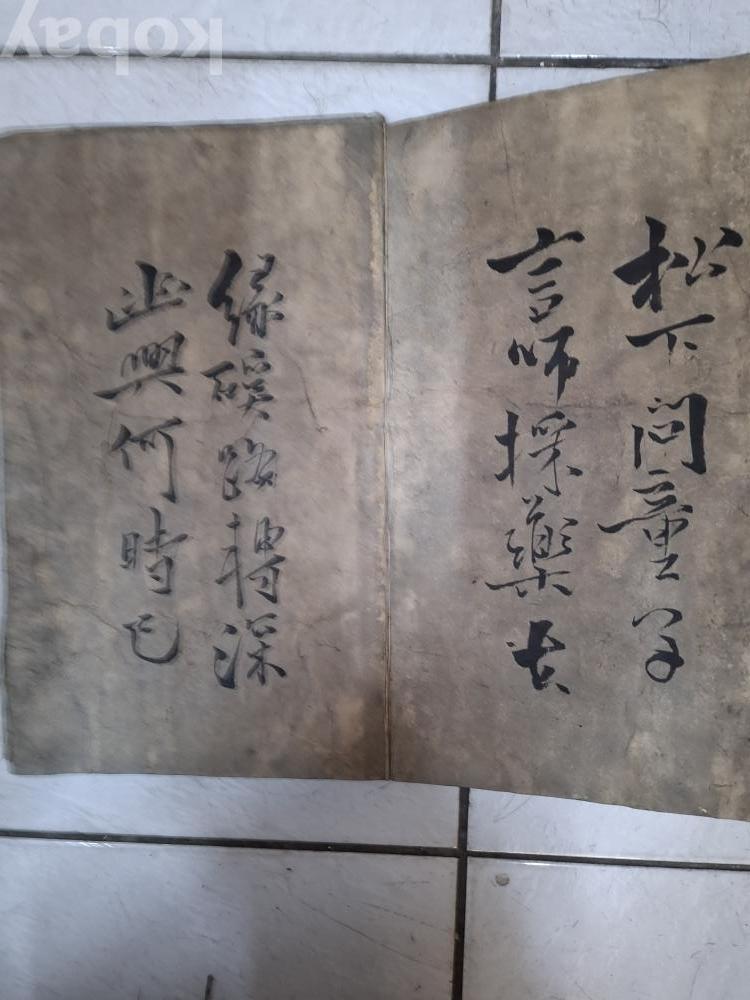 松下問童子
言師採藥去
緣磎路轉深
幽興何時已
kobay